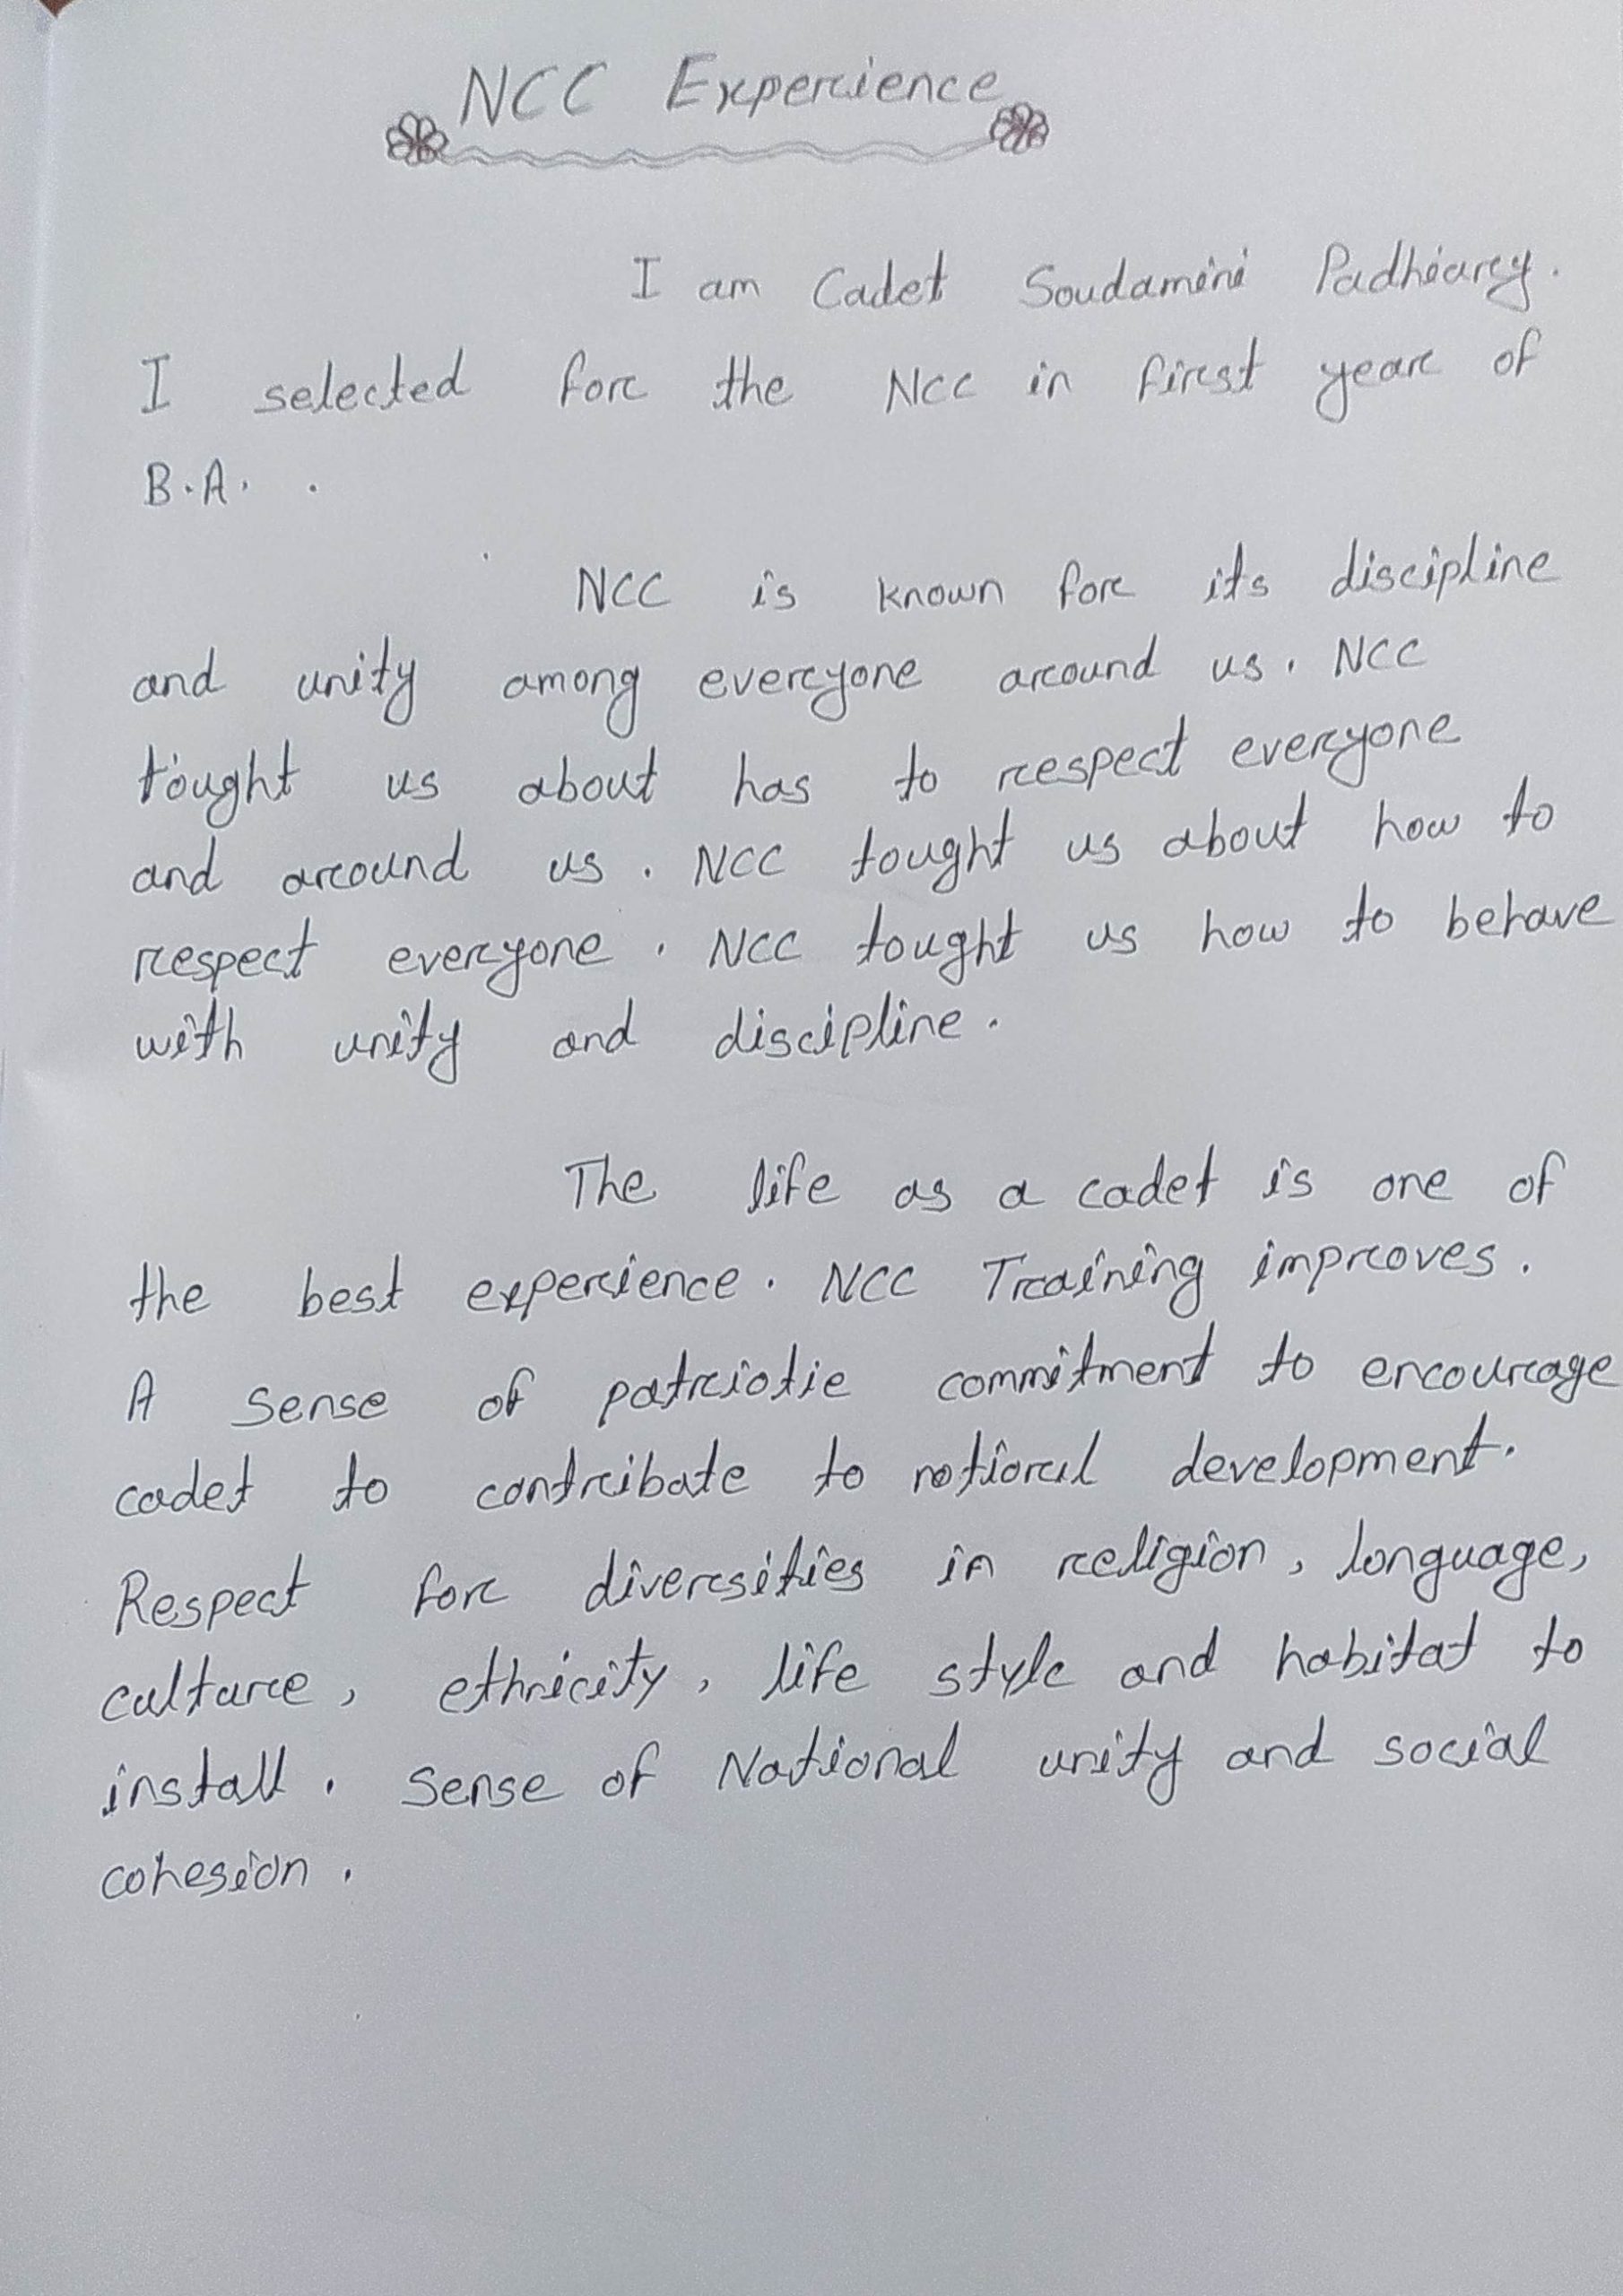 NCC Experience
I am Cadet Soudamini Padhiary.
I selected for the NCC in first year of
B.A. .
NCC is known for its discipline
and unity among everyone around us. NCC
tought us about has to respect everyone
and around us. NCC tought us about how to
respect everyone. NCC tought us how to behave
with unity and discipline.
The life as a cadet is one of
the best experience. NCC Training improves.
A sense of patriotie commitment to encourage
cadet to contribate to notional development.
Respect for diversities in religion, longuage,
culture, ethnicity, life style and habitat to
install. Sense of National unity and social
cohesion.